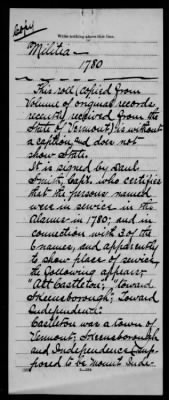 Copy
Write nothing above this line.
Militia—
1780
This roll (copied from
Volume of original records
recently received from the
State of Vermont) is without
a caption and does not
show State.
It is signed by Saml.
Smith, Capt. who certifies
that the persons named
were in service in this
Alarm in 1780; and in
connection with 3 of the
names, and apparently
to show place of service,
the following appears:
"Att Castleton;" "toward
Skeenesborough;" "Toward
Independent."
Castleton was a town of
Vermont; Skeenesborough
and Independence (sup-
posed to be Mount Inde-